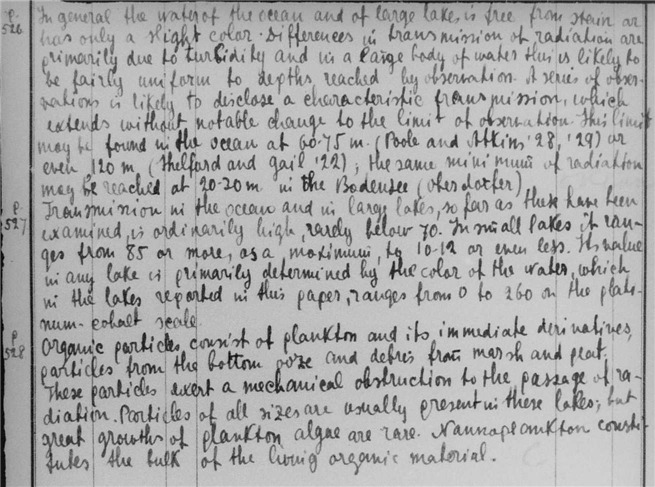 p. 526 In general the water of the ocean and of large lakes is free from stain or
has only a slight color. Differences in transmission of radiation are
primarily due to turbidity and in a large body of water this is likely to
be fairly uniform to depths reached by observation. A series of obser-
vations is likely to disclose a characteristic transmission, which
extends without notable change to the limit of observation. This limit
may be found in the ocean at 60-75 m. (Poole and Atkins '28, '29) or
even 120 m (Shelford and Gail '22); the same minimum of radiation
may be reached at 20-30 m. in the Bodensee (Oberdorfer)
p. 527 Transmission in the ocean and in large lakes, so far as these have been
examined, is ordinarily high, rarely below 70. In small lakes it ran-
ges from 85 or more, as a maximum, to 10-12 or even less. Its value
in any lake is primarily determined by the color of the water, which
in the lakes reported in this paper, ranges from 0 to 260 on the plati-
num-cobalt scale.
p 528 Organic particles consist of plankton and its immediate derivatives,
particles from the bottom ooze and debris from marsh and peat.
These particles exert a mechanical obstruction to the passage of ra-
diation. Particles of all sizes are usually present in these lakes; but
great growths of plankton algae are rare. Nannoplankton consti-
tutes the bulk of the living organic material.